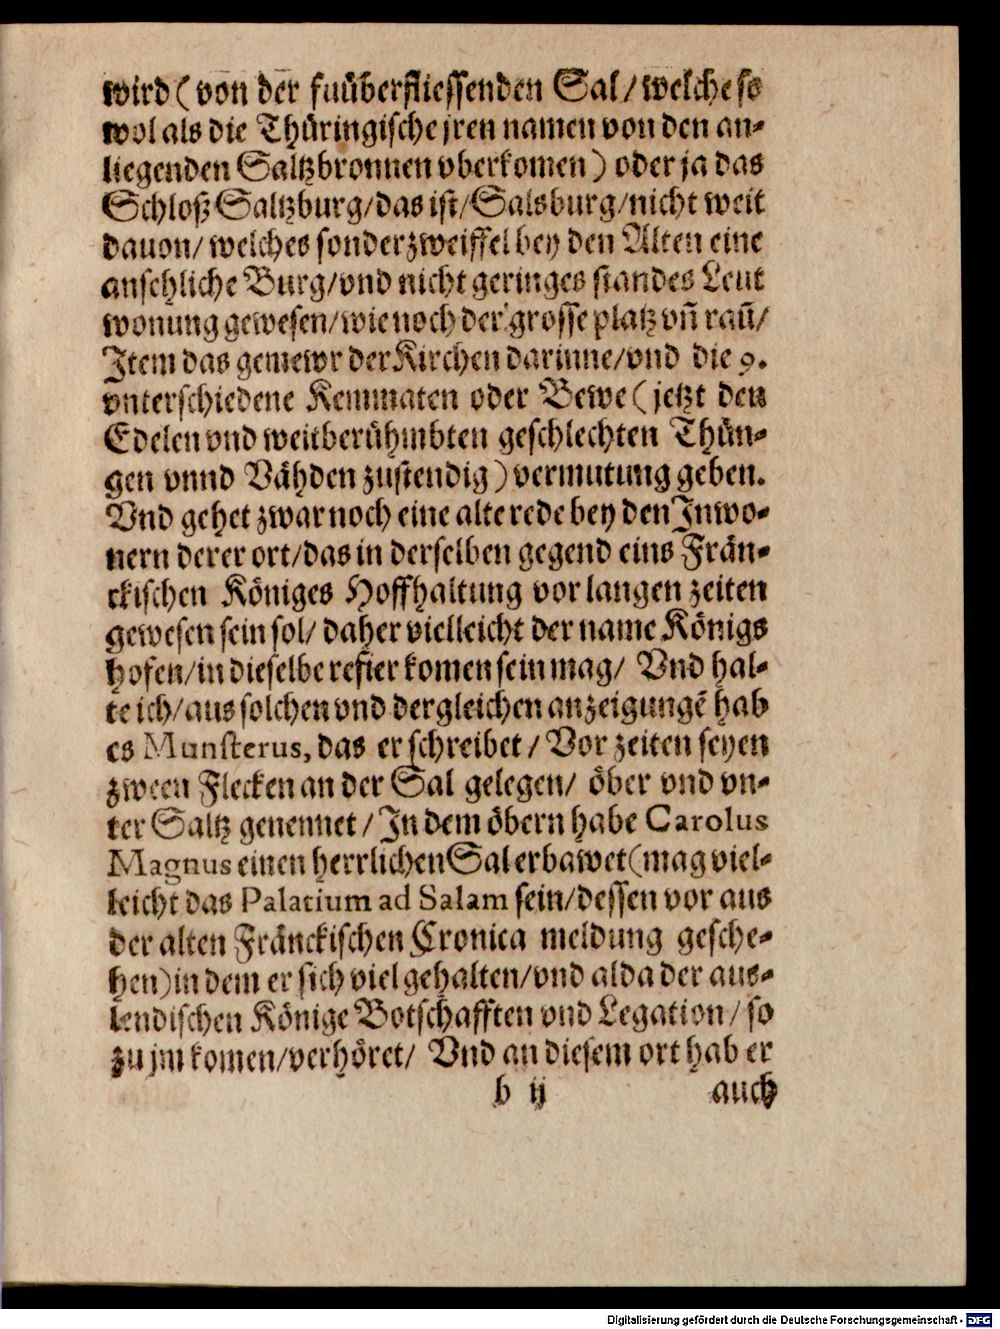 wird (von der fuͤruͤberfliessenden Sal / welche so
wol als die Thuͤringische jren namen von den an-
liegenden Saltzbronnen vberkomen) oder ja das
Schloß Saltzburg / das ist / Salsburg / nicht weit
dauon / welches sonder zweiffel bey den Alten eine
ansehliche Burg / vnd nicht geringes standes Leut
wonung gewesen / wie noch der grosse platz vñ rauͤ /
Item das gemewr der Kirchen darinne / vnd die 9.
vnterschiedene Kemmaten oder Bewe (jetzt den
Edelen vnd weitberuͤhmbten geschlechten Thuͤn-
gen vnnd Vaͤhden zustendig) vermutung geben.
Vnd gehet zwar noch eine alte rede bey den Inwo-
nern derer ort / das in derselben gegend eins Fraͤn-
ckischen Koͤniges Hoffhaltung vor langen zeiten
gewesen sein sol / daher vielleicht der name Koͤnigs
hofen / in dieselbe refier komen sein mag / Vnd hal-
te ich / aus solchen vnd dergleichen anzeigungẽ hab
es Munsterus, das er schreibet / Vor zeiten seyen
zween Flecken an der Sal gelegen / oͤber vnd vn-
ter Saltz genennet / In dem oͤbern habe Carolus
Magnus einen herrlichen Sal erbawet (mag viel-
leicht das Palatium ad Salam sein / dessen vor aus
der alten Fraͤnckischen Cronica meldung gesche-
hen) in dem er sich viel gehalten / vnd alda der aus-
lendischen Koͤnige Botschafften vnd Legation / so
zu jm komen / verhoͤret / Vnd an diesem ort hab er
b ij auch
Digitalisierung gefördert durch die Deutsche Forschungsgemeinschaft - DFG